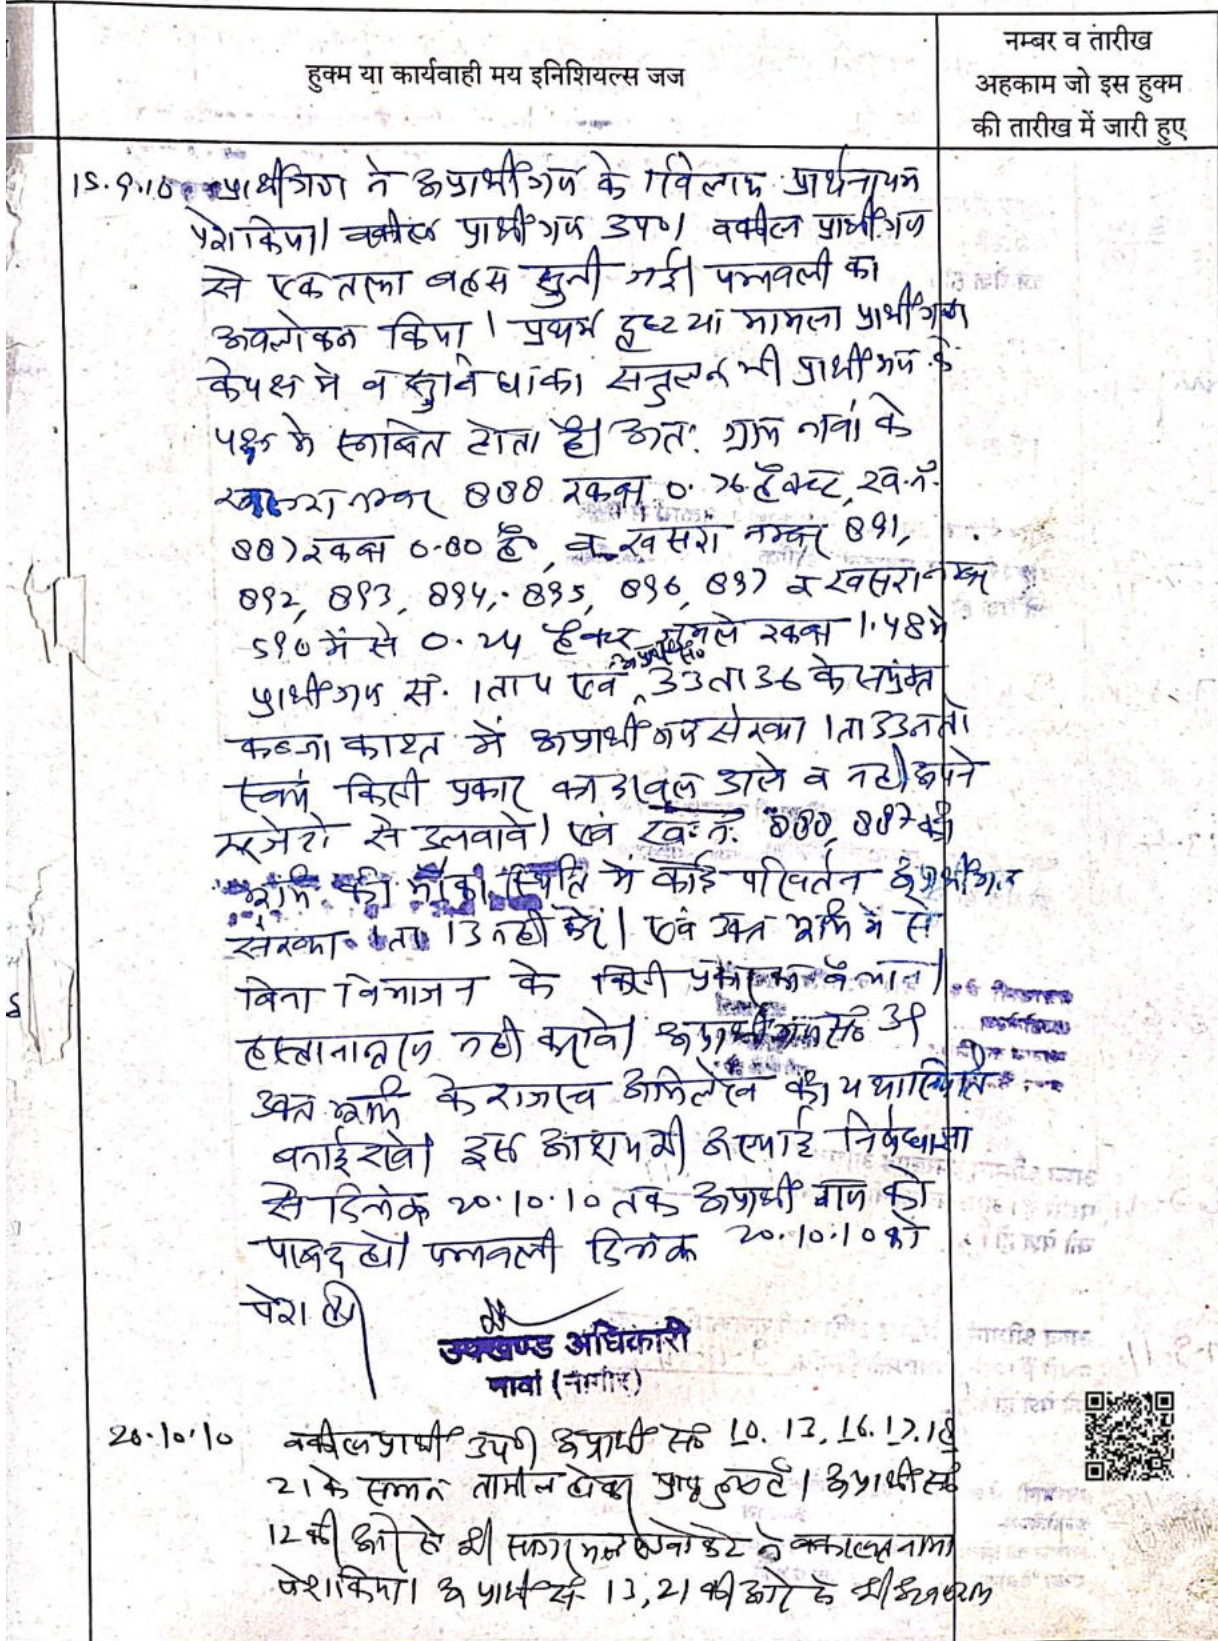 हुक्म या कार्यवाही मय इनिशियल्स जज
नम्बर व तारीख
अहकाम जो इस हुक्म
की तारीख में जारी हुए
15.9.10 प्रार्थीगण ने अप्रार्थीगण के खिलाफ प्रार्थनापत्र
पेश किया। वकील प्रार्थीगण उप०। वकील प्रार्थीगण
से एकतरफा बहस सुनी गई। पत्रावली का
अवलोकन किया। प्रथम दृष्टया मामला प्रार्थीगण
के पक्ष मे व सुविधा का सतुलन भी प्रार्थीगण के
पक्ष मे साबित होता है। अतः ग्राम नावां के
खसरा नम्बर 888 रकबा 0.76 हैक्टर, ख.नं.
887 रकबा 0.80 है०, व खसरा नम्बर 891,
892, 893, 894, 895, 896, 897 व खसरा नम्बर
590 में से 0.24 हैक्टर रकबा 1.48 मे
प्रार्थीगण सं. 1 ता 4 एवं अप्रार्थी सं० 33 ता 36 के संयुक्त
कब्जा काश्त में अप्रार्थीगण संख्या 1 ता 33 न तो
स्वयं किसी प्रकार का दखल डाले व न ही अपने
से डलवावे। एवं ख.नं. 888, 887 की
भूमि की मौका स्थिति मे कोई परिवर्तन अप्रार्थीगण
संख्या 1 ता 13 नही करे। एवं उक्त भूमि मे से
बिना विभाजन के किसी प्रकार का बेचान।
हस्तानान्तरण नही करावे। अप्रार्थीगण सं० 39
उक्त भूमि के राजस्व अभिलेख की यथास्थिति
बनाई रखे। इस आशय की अस्थाई निषेधाज्ञा
से दिनांक 20.10.10 तक अप्रार्थीगण को
पाबन्द हो। पत्रावली दिनांक 20.10.10 को
पेश हो।
उपखण्ड अधिकारी
नावां (नागौर)
20.10.10 वकील प्रार्थी उप०। अप्रार्थी सं० 10. 13. 16. 17. 18
21 के सम्मन तामील होकर प्राप्त हुए है। अप्रार्थी सं०
12 की ओर से श्री एडवोकेट ने वकालतनामा
पेश किया। अप्रार्थी सं. 13, 21 की ओर से श्री